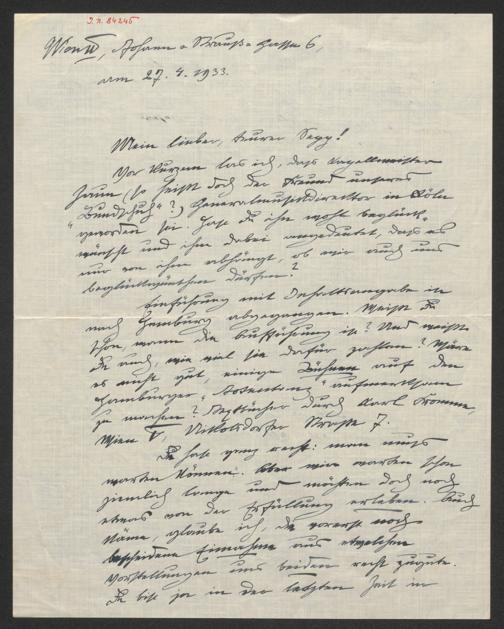 I. n. 84245
Wien IV, Johann-Strauß-Gasse 6,
am 27. 4. 1933.
Mein lieber, teurer Sepp!
Vor Kurzem las ich, dass Kapellmeister
Zaun (so heisst doch der Freund unseres
"Bundschuh"?) Generalmusikdirektor in Köln
geworden sei. Hast Du ihn wohl beglück-
wünscht und ihm dabei angedeutet, dass es
nur von ihm abhängt, ob wir auch uns
beglückwünschen dürfen?
Einführung mit Inhaltsangabe ist
nach Hamburg abgegangen. Weisst Du
schon, wann die Aufführung ist? Und weisst
Du auch, wie viel sie dafür zahlen? Wäre
es nicht gut, einige Bühnen auf den
Hamburger "Rosengarten" aufmerksam
zu machen? Textbücher durch Karl Fromme,
Wien V, Nikolsdorfer Strasse 7.
Du hast ganz recht: man muss
warten können. Aber wir warten schon
ziemlich lange und möchten doch noch
etwas von der Erfüllung erleben. Auch
käme, glaube ich, die vorerst noch
bescheidene Einnahme aus etwelchen
Vorstellungen uns beiden recht zugute.
Du bist ja in der letzten Zeit in